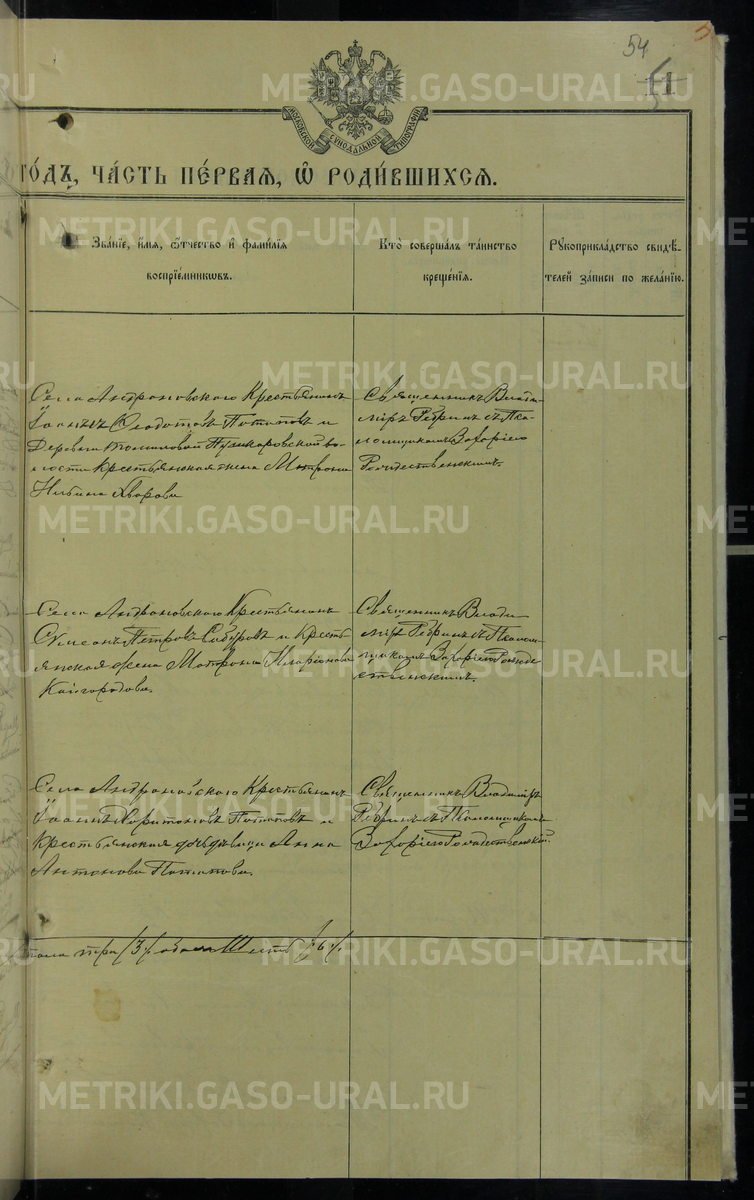 54
51
МОСКОВСКОЙ СѴНОДАЛЬНОЙ ТИПОГРАФІИ
го́дъ, ча́сть пе́рвая, ѡ҆ роди́вшихся.
Зва́нїе, и҆́мѧ, ѻ҆́тчество и҆ фами́лїѧ
воспрїе́мникѡвъ.
Кто̀ соверша́лъ та́инство
креще́нїѧ.
Рꙋкоприкла́дство свидѣ́-
телей за́писи по жела́нїю.
Села Андроновскаго Крестьянинъ
Іоаннъ Ѳеодотовъ Потаповъ и
Деревни Пушкаровской во-
лости крестьянская жена Матрона
Хварова
Священникъ Влади
міръ Ребринъ съ Пса-
ломщикомъ
Рождественскимъ.
Села Андроновскаго Крестьянинъ
Сѵмеонъ Петровъ и Кресть
янская жена Матрона Иларіонова
Кайгородова.
Священникъ Влади
міръ Ребринъ съ Псалом
щикомъ Рождe
ственскимъ.
Села Андроновскаго Крестьянинъ
Іоаннъ Харитоновъ Потаповъ и
Крестьянская дочь дѣвица Анна
Антонова Потапова.
Священникъ Владиміръ
Ребринъ съ Псаломщикомъ
Рождественскій.
три /3/ обоего шесть /6/.
METRIKI.GASO-URAL.RU